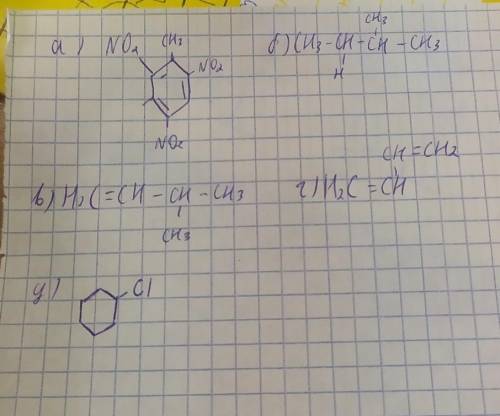 а) NO2 CH3 NO2 NO2
б) CH3-CH-CH-CH3 CH3 H
в) H2C=CH-CH-CH3 CH3
г) H2C=CH CH=CH2
д) Cl